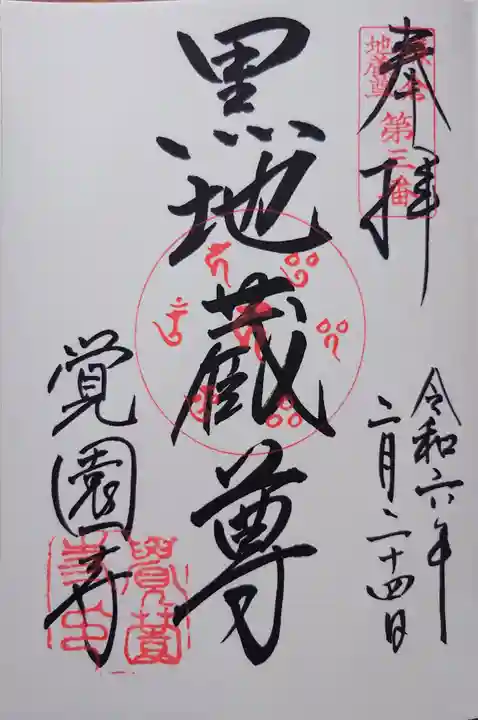 奉拝
鎌倉
地蔵尊
第三番
黒地蔵尊
令和六年
二月二十四日
覚園寺
覺園
寺印